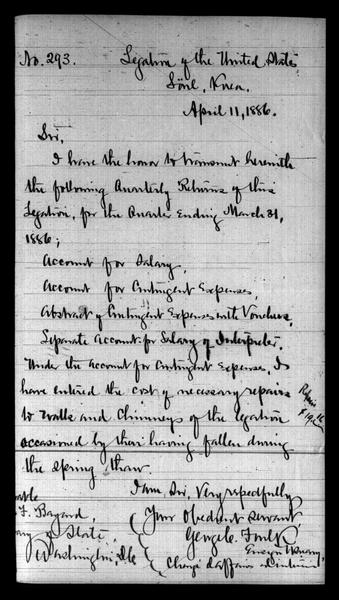 No. 293.
Legation of the United States
Söul, Korea,
April 11, 1886.
Sir,
I have the honor to transmit herewith
the following Quarterly Returns of this
Legation, for the Quarter Ending March 31,
1886;
Account for Salary,
Account for Contingent Expenses,
Abstract of Contingent Expenses with Vouchers,
Separate Account for Salary of Interpreter.
Under the account for Contingent Expenses, I
have entered the cost of necessary repairs
to walls and Chimneys of the legation
occasioned by their having fallen during
the spring thaw.
I am, Sir, Very respectfully
Your Obedient servant,
George C. Foulk
Ensign U.S. Navy,
Chargé d'affaires ad interim
F. Bayard,
of State,
Washington, D.C.
Repairs